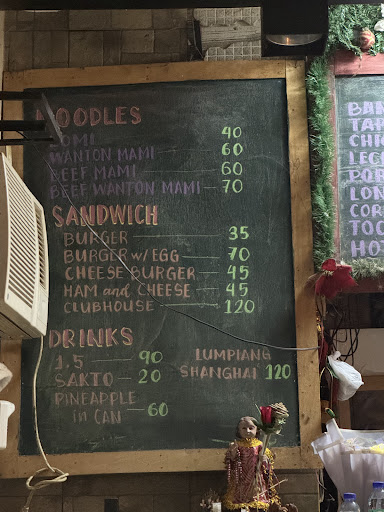 NOODLES
LOMI 40
WANTON MAMI 60
BEEF MAMI 60
BEEF WANTON MAMI 70
SANDWICH
BURGER 35
BURGER W/ EGG 70
CHEESE BURGER 45
HAM and CHEESE 45
CLUBHOUSE 120
DRINKS
1.5 90
SAKTO 20
PINEAPPLE
in CAN 60
LUMPIANG
SHANGHAI 120